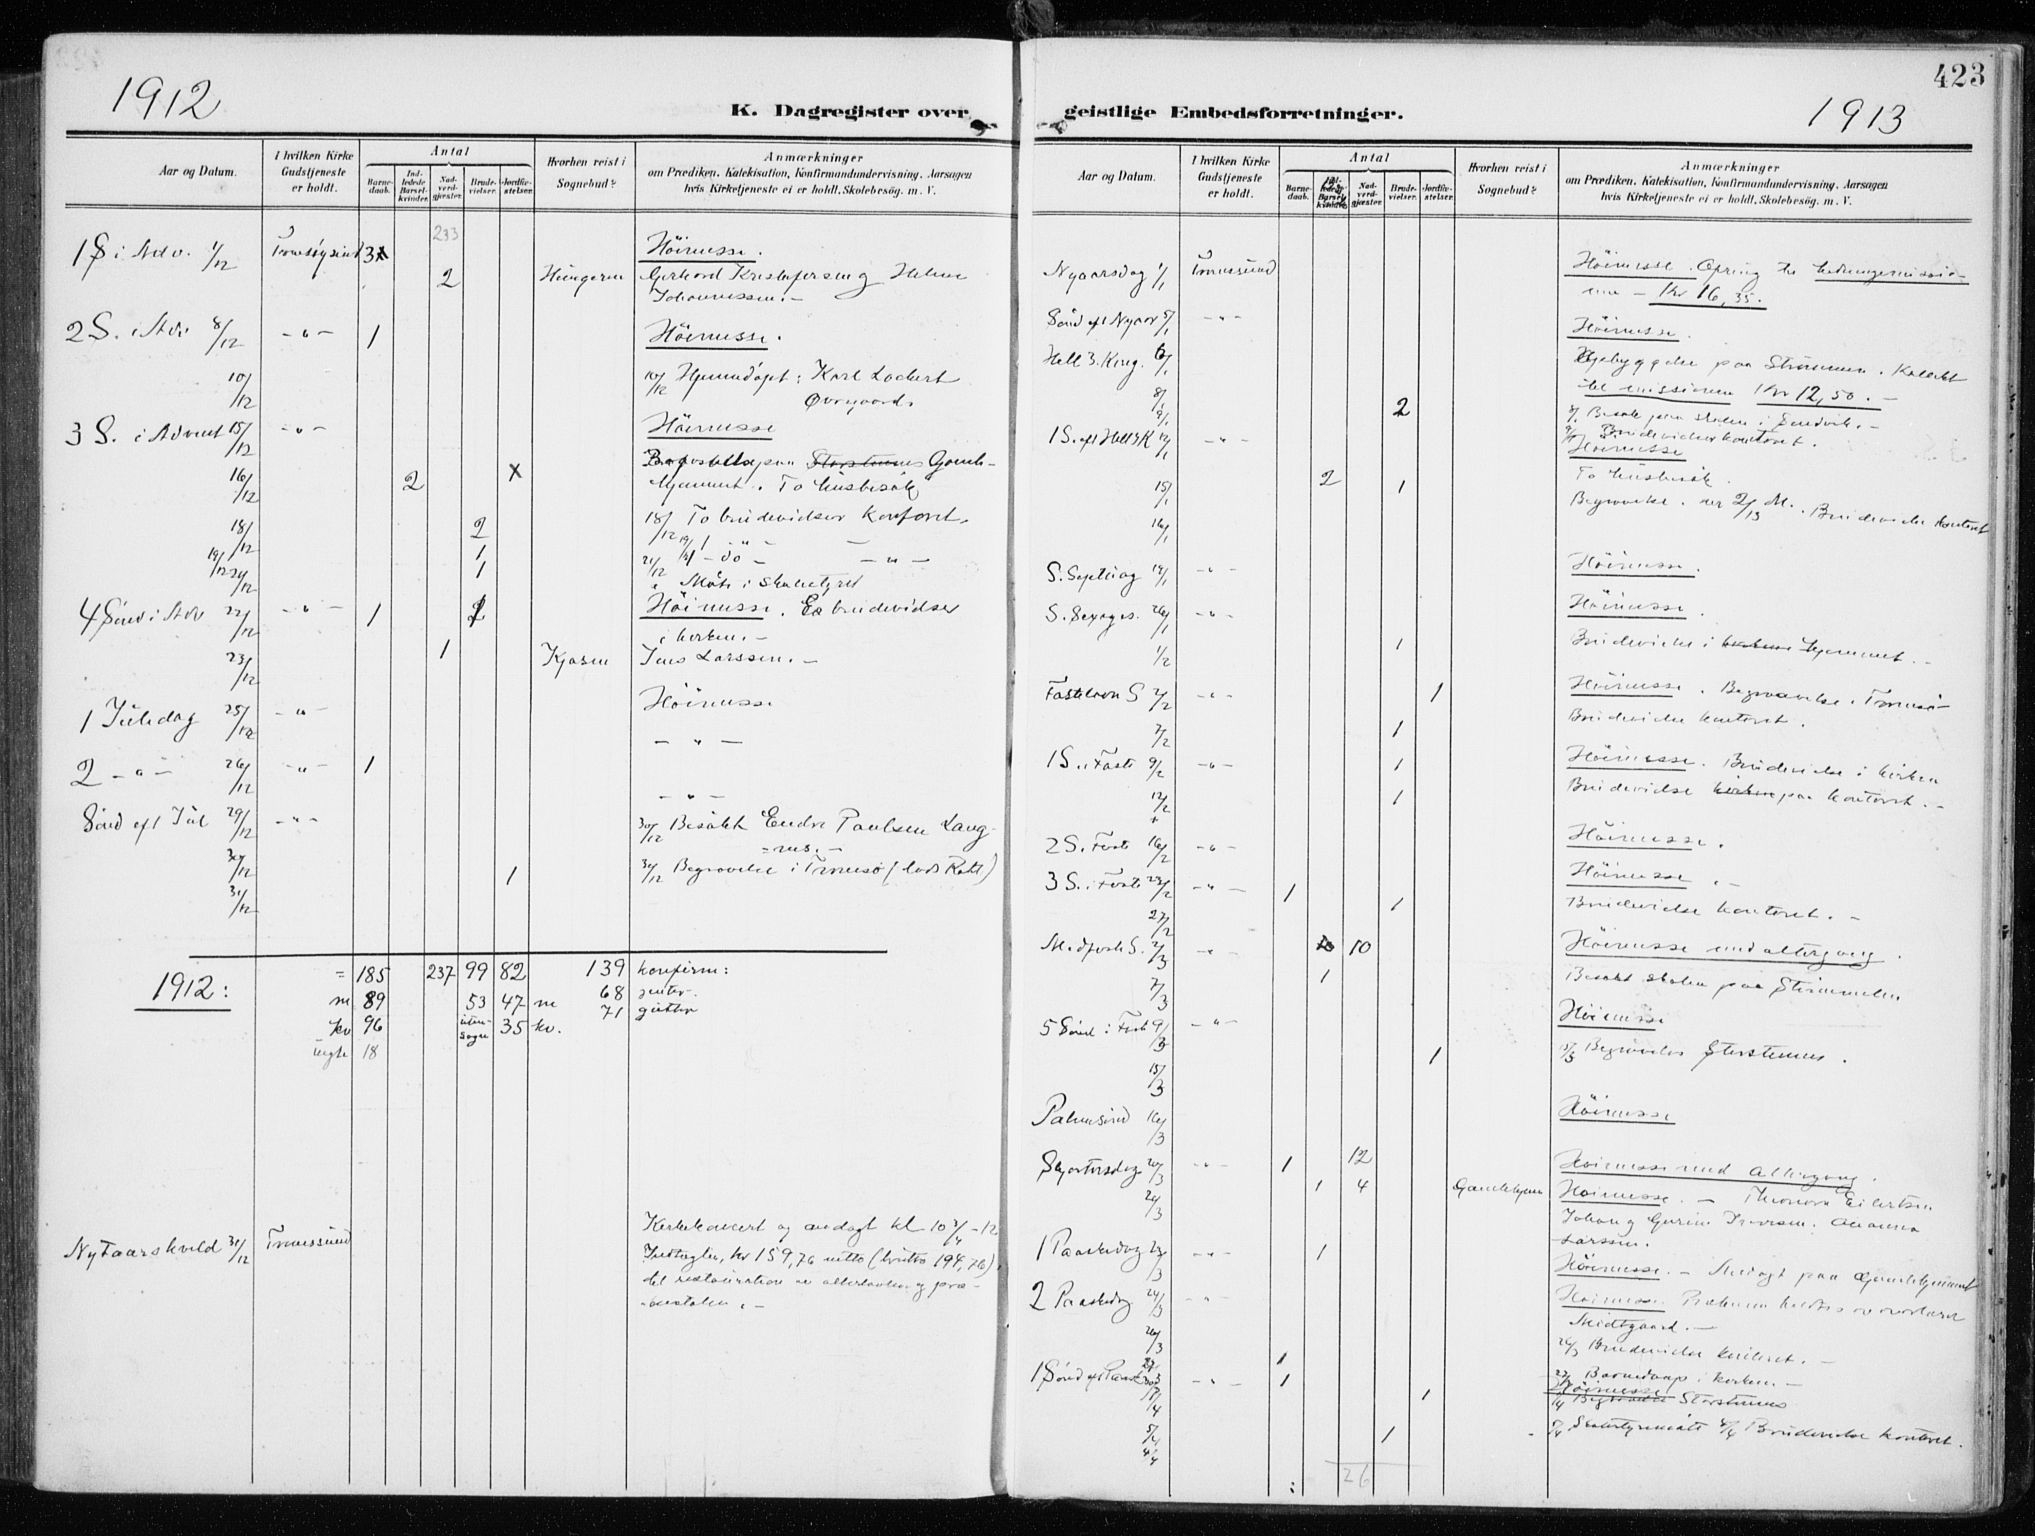 1912
K. Dagregister over
Aar og Datum.
I hvilken Kirke Gudstjeneste er holdt.
Antal
Barne-daab.
Ind-ledede Barsel-kvinder.
Nad-verd-gjæster.
Brude-vielser.
Jordfæ-stelser.
Hvorhen reist i Sognebud?
Anmærkninger
om Prædiken, Katekisation, Konfirmandundervisning, Aarsagen
hvis Kirketjeneste ei er holdt, Skolebesøg. m. V.
233
1 S i Adv. 1/12 3 Høimesse.
2 Hungeren Gerhard Kristofersen og Helene
Johannessen. –
2 S. i Adv 8/12 – " – 1 Høimesse.
10/12 10/12 Hjemmedøpt: Karl Lockert
Øvergaard
3 S. i Advent 15/12 – " – Høimesse
16/12 2 x paa Gamle-
hjemmet. To husbesøk
18/12 2 18/12 To brudevielser Kontoret.
19/12 1 19/1 – " –
21/12 1 21/12 – do – – " –
" Møte i skolestyret
4 Sønd i Adv 22/12 – " – 1 Høimesse. En brudevielse
i kirken. –
23/12 1 Jens Larssen. –
1 Juledag 25/12 – " – Høimesse
2 – " – 26/12 – " – 1 – " –
Sønd eft Jul 29/12 – " – – " –
30/12 Besøkt Endre Paulsen Lang-
=nes. –
30/12 1 30/12 Begravelse i Tromsø
31/12
1912: = 185 237 99 82 139 konfirm:
m 89 53 47 m 68 jenter.
kv 96 uten- sogns 35 kv. 71 gutter
uegte 18
Nytaarskveld 31/12 Tromsund Kirkekoncert og andagt kl 10 3/4 – 12
Indtægter kr 159,76 netto (brutto 194,76),
til restauration av altertavlen og præ-
kestolen. –
423
1913
geistlige Embedsforretninger.
Aar og Datum.
I hvilken Kirke Gudstjeneste er holdt.
Antal
Barne-daab.
Ind-ledede Barsel-kvinder
Nad-verd-gjæster.
Brude-vielser.
Jordfæ-stelser.
Hvorhen reist i Sognebud?
Anmærkninger
om Prædiken, Katekisation, Konfirmandundervisning, Aarsagen
hvis Kirketjeneste ei er holdt, Skolebesøg. m. V.
Nyaarsdag 1/1 Tromsund Høimesse. Ofring til hedningemissio-
nen – Kr 16,35.
Sønd eft Nyaar 5/1 – " – Høimesse.
Hell 3. Kong. 6/1 paa Strømmen. Kollekt
til missionen Kr 12,50. –
8/1 8/1 Besøk paa skolen i Sandvik. –
9/1 2 9/1 Brudevielser kontoret.
1 S. eft Hell 3 K 12/1 – " – Høimesse
2 To husbesøk.
15/1 1 Begravelse. Brudevielse kontoret
16/1
S. Septuag 19/1 – " – Høimesse.
S. Sexages. 26/1 – " – Høimesse.
1/2 1 Brudevielse i hjemmet. –
Fastelavn S 2/2 – " – 1 Høimesse. Begravelse i Tromsø
7/2 1 Brudevielse kontoret.
1 S. i Faste 9/2 – " – 1 Høimesse. Brudevielse i kirken
12/2 1 Brudevielse paa kontoret. –
2 S. i Faste 16/2 – " – Høimesse.
3 S. i Faste 23/2 – " – 1 Høimesse. –
27/2 1 Brudevielse kontoret. –
Midfaste S. 2/3 – " – 10 Høimesse med altergang.
7/3 1 Besøkt skolen paa
5 Sønd i Faste 9/3 – " – Høimesse
15/3 1 15/3 Begravelse Storstennes.
Palmesønd 16/3 Høimesse
Skjærtorsdag 20/3 – " – 1 12 Høimesse med altergang.
21/3 1 4 Gamlehjem Høimesse. – Eilertsen
Larssen.
1 Paaskedag 23/3 – " – 1 Høimesse. – Andagt paa Gamlehjemmet
2 Paaskedag 24/3 – " – Høimesse. Prækenen holdtes av overlærer
Midtgaard. –
26/3 1 26/3 Brudevielse kontoret. –
27/3 Barnedaap i kirken. –
1 Sønd eft Paaske 30/3 – " – 1 Høimesse
1/4 1 1/4 Begravelse Storstennes
5/4 1 5/4 Skolestyremøte 4/4 Brudevielse kontoret.
4/4
26